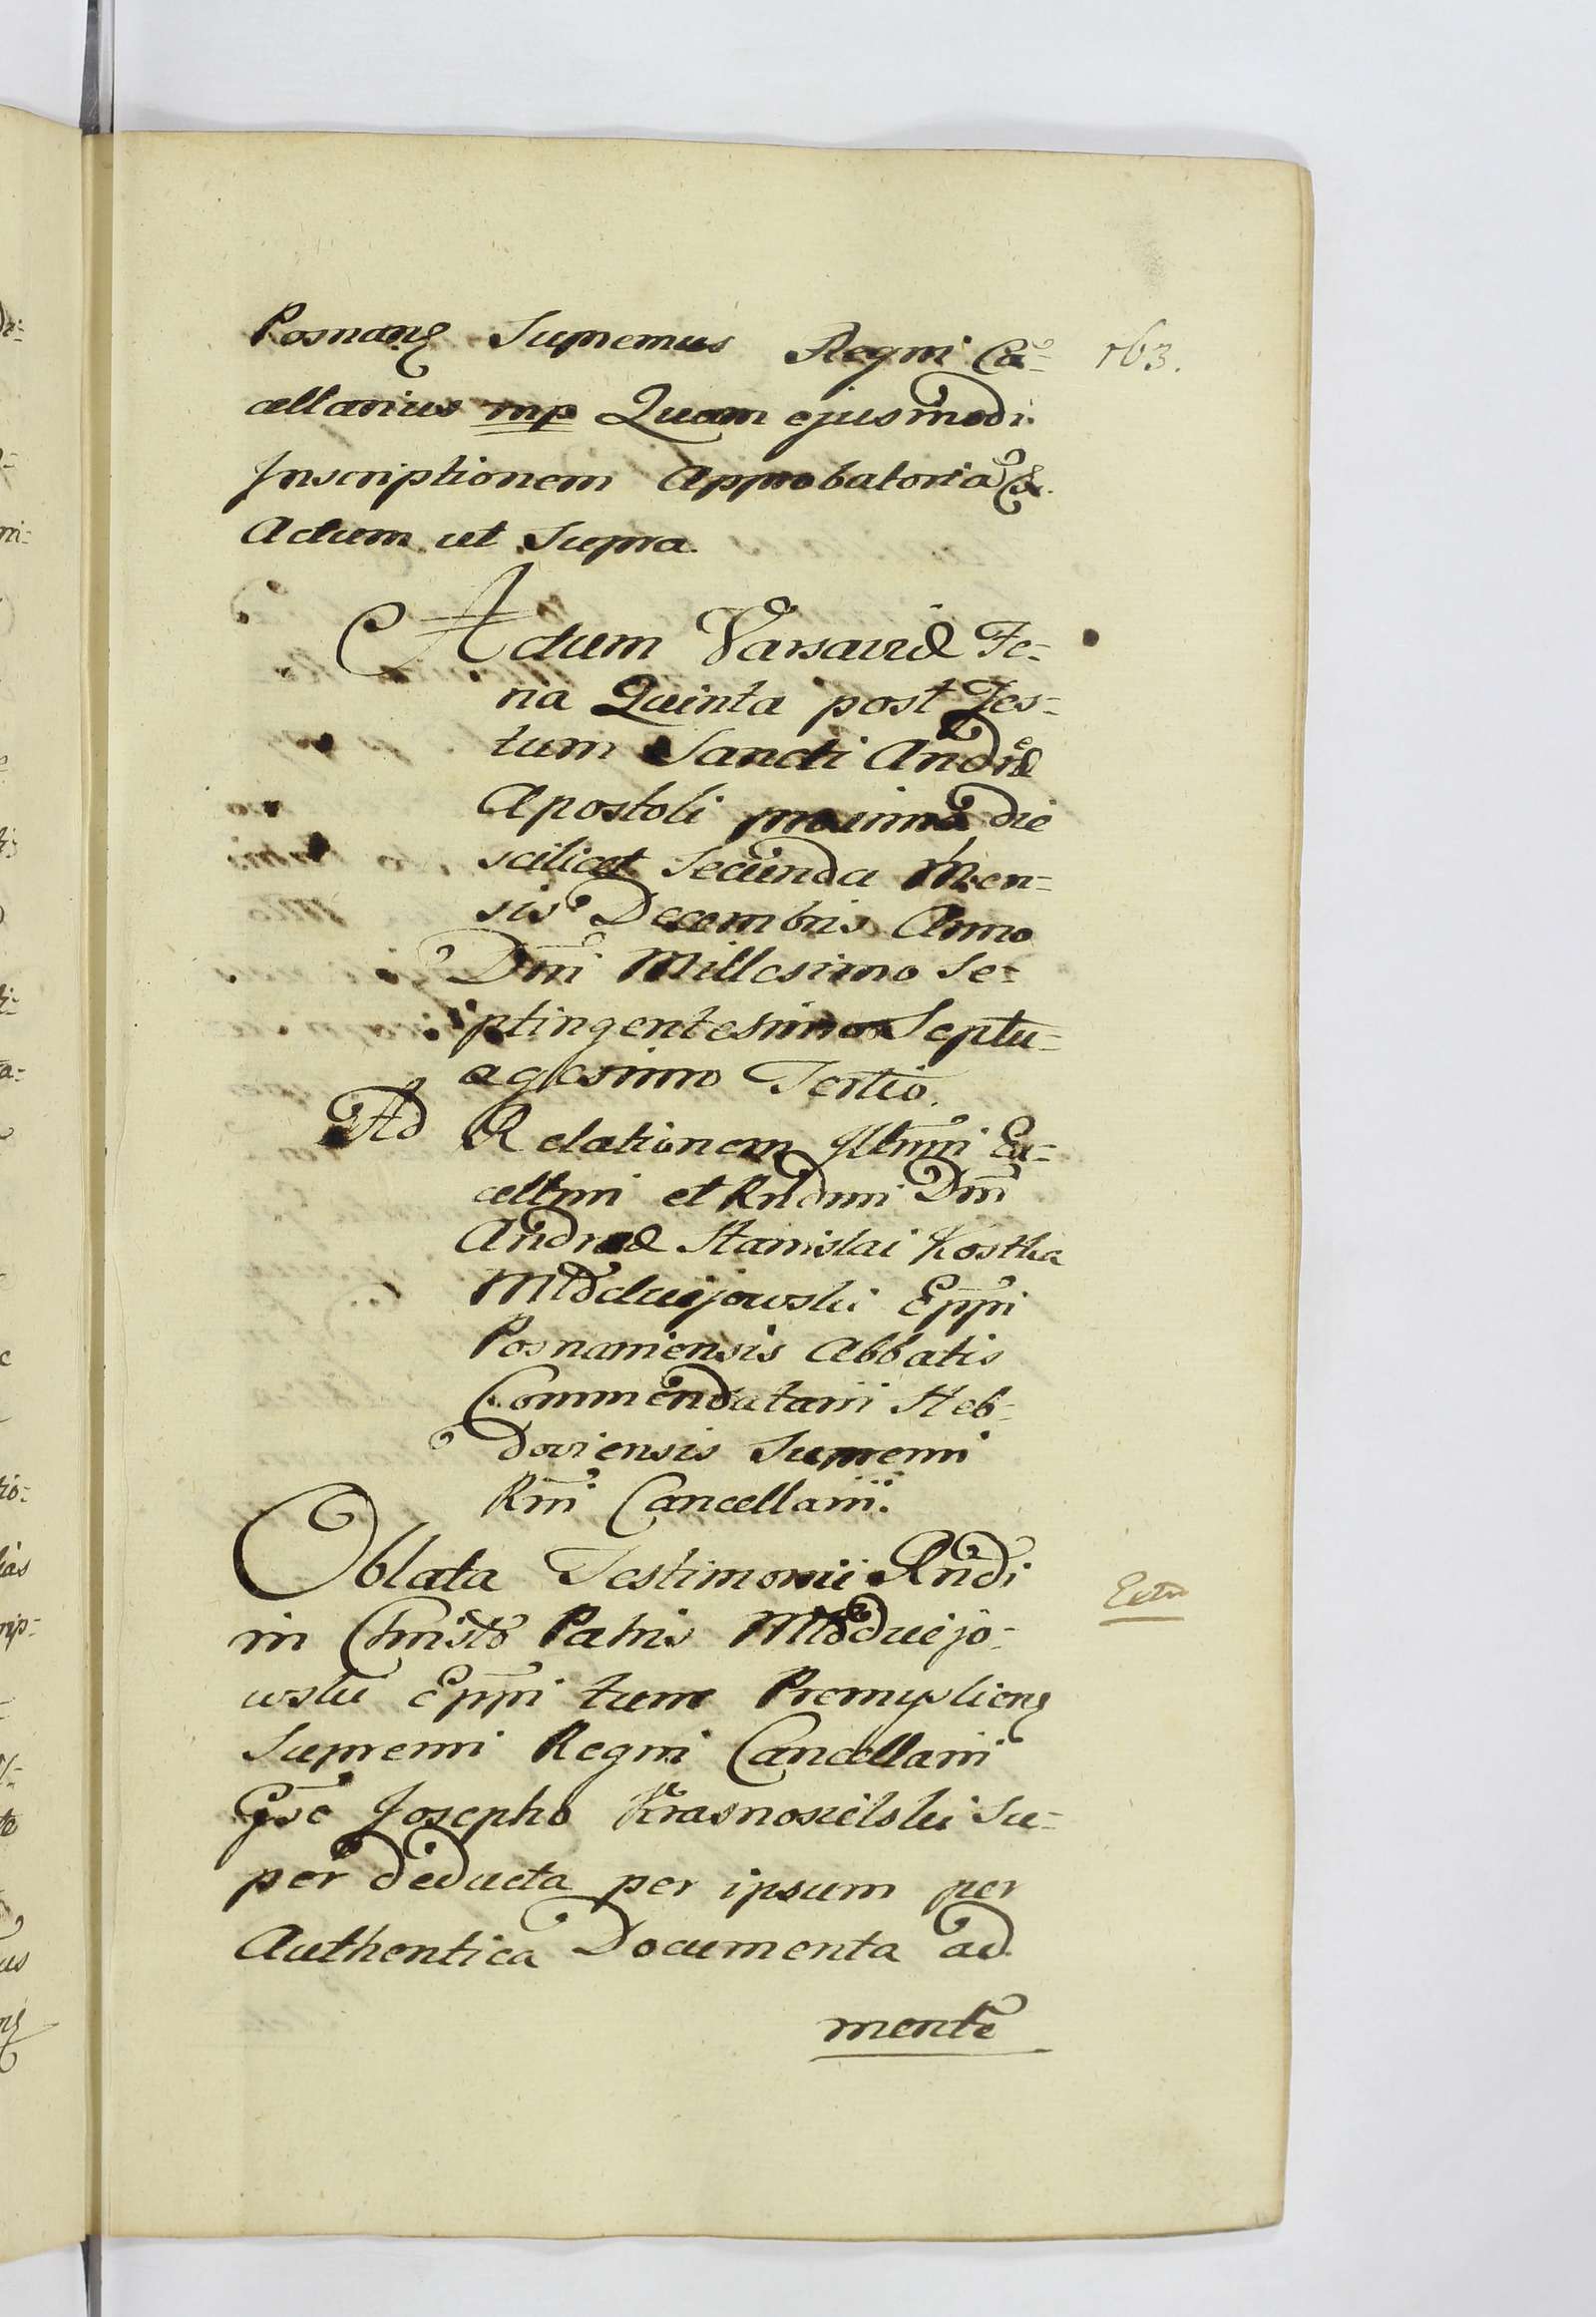 Posnanẽ Supremus Regni Cã= 163.
cellarius mp Quam ejusmodi
Inscriptionem Approbatoriã &.
Actum ut Supra.
Actum Varsaviæ Fe=
ria Quinta post Fes=
tum Sancti Andreæ
Apostoli proxima die
scilicet Secunda Men=
sis Decembris Anno
Dnĩ Millesimo Se=
ptingentesimo Septu=
agesimo Tertio.
Ad Relationem Illmĩ Ex=
cellmi et Rndmi Dnĩ
Andreæ Stanislai Kostka
Młodziejowski Eppĩ
Posnaniensis Abbatis
Commendatarii Heb=
doviensis Supremi
Rnĩ Cancellarii.
Oblata Testimonii Rndĩ
in Christo Patris Młodziejo=
wski Eppĩ tum Premysliens
Supremi Regni Cancellarii
Gsõ Josepho Krasnosielski Su=
per deducta per ipsum per
Authentica Documenta ad
mentẽ